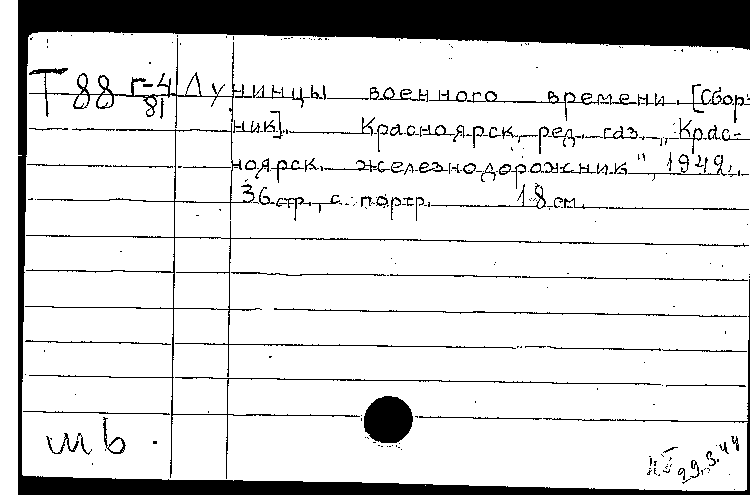 Т 88 г-4/81 Лунинцы военного времени. [Сбор-
ник]. Красноярск, ред. газ. „Крас-
ноярск. железнодорожник", 1942.
36 стр., с портр. 18 см.
мb.
29.3.44